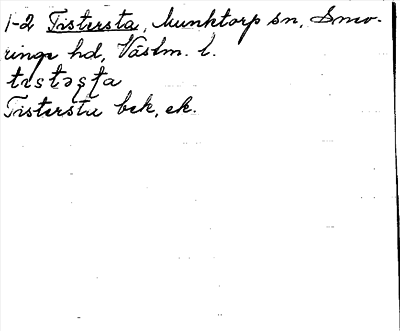 1-2 Tistersta, Munktorp sn, Snev-
ringe hd, Västm. l.
tɪstəʂʈa
Tistersta bek, ek.